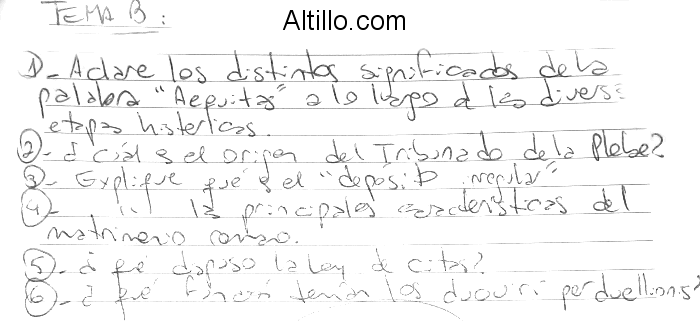 Altillo.com
TEMA B:
1)- Aclare los distintos significados de la
palabra "Aequitas" a lo largo d las divers
etapas históricas.
2)- ¿Cuál es el origen del Tribunado de la Plebe?
3)- Explique qué es el "depósito irregular"
4)- " " las principales características del
matrimonio romano.
5)- ¿Qué dispuso la Ley de citas?
6)- ¿Qué función tenían los duoviri perduellionis?